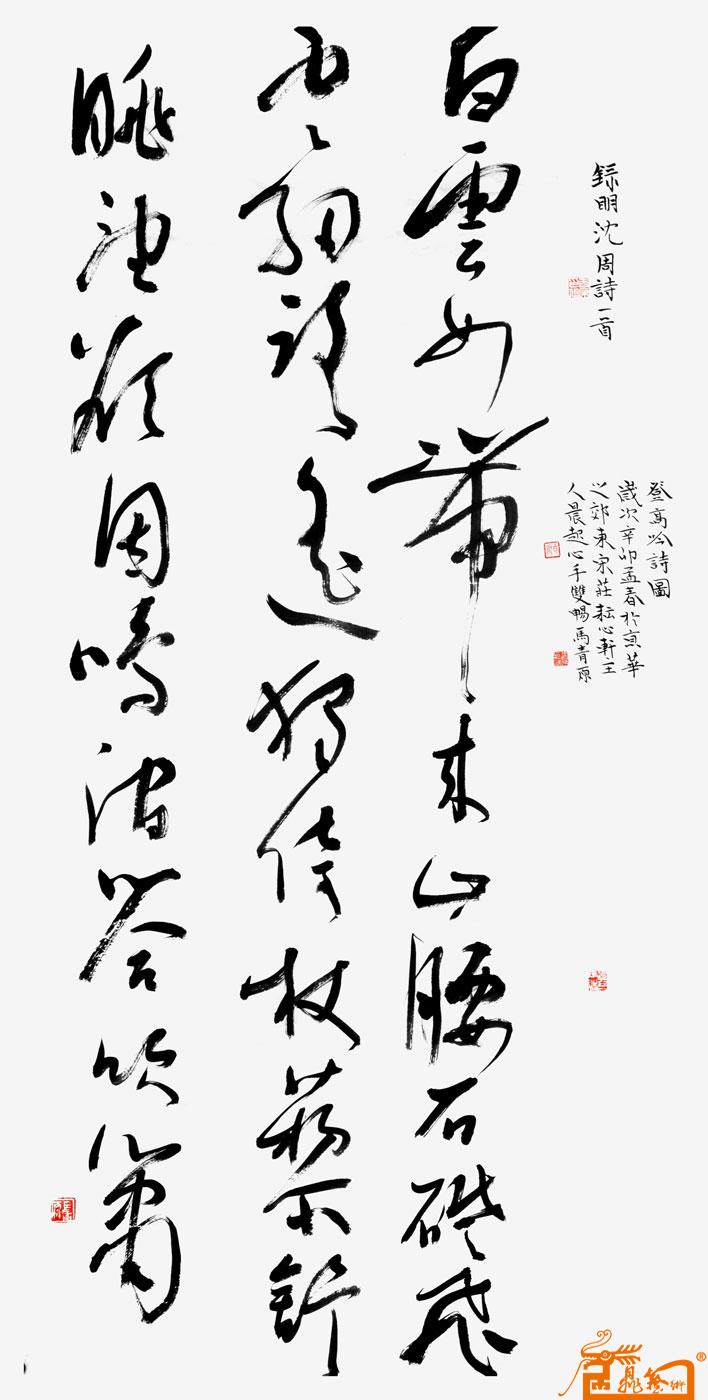 錄明沈周詩一首
登高吟詩圖
歲次辛卯孟春於京華
之郊東宋莊耘心軒主
人晨起心手雙暢馬青原
白雲如帶束山腰石磴飛
空細路遙獨倚杖藜舒
眺望欲因鳴澗答吹簫